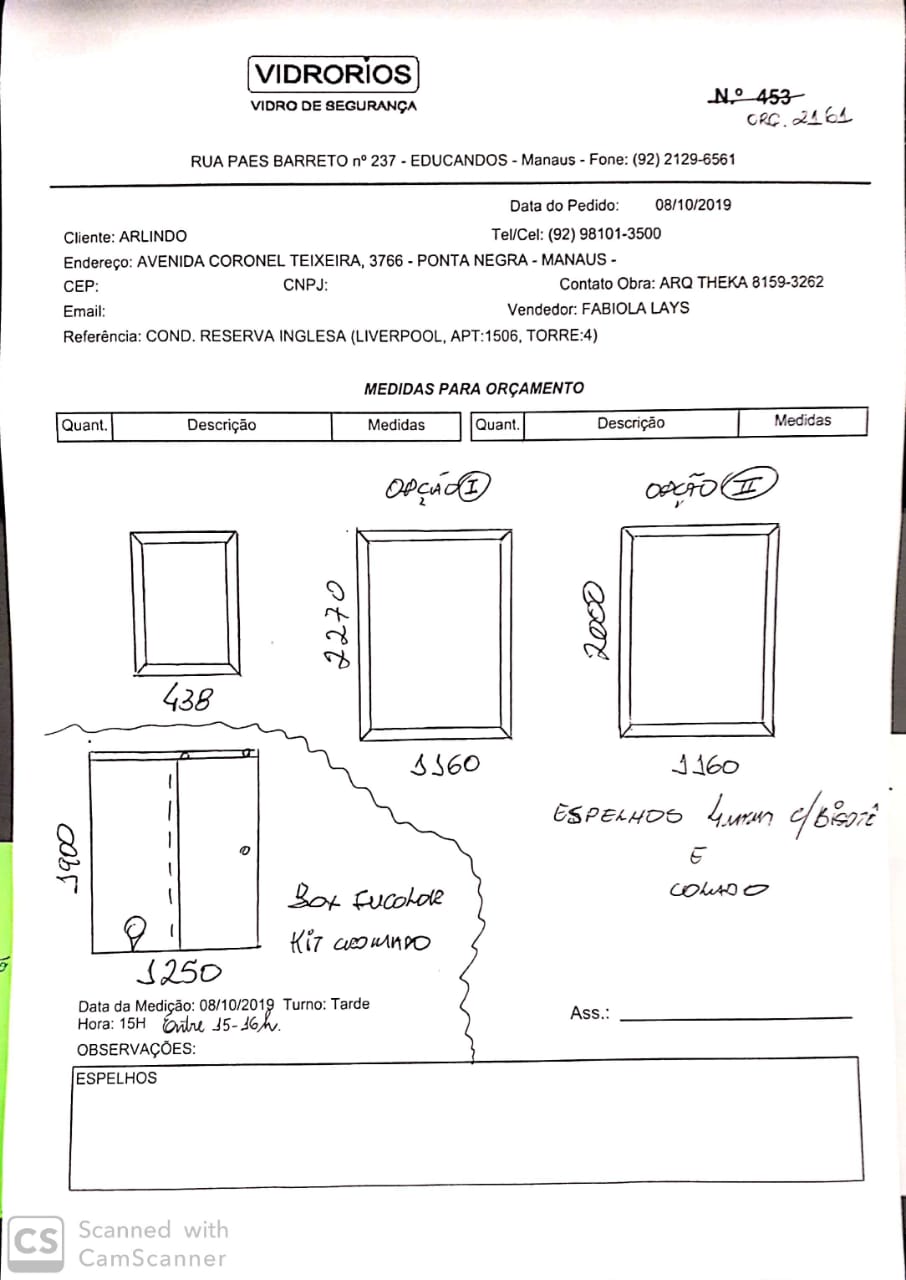 VIDRORIOS
VIDRO DE SEGURANÇA
N.º 453
ORÇ. 2161
RUA PAES BARRETO nº 237 - EDUCANDOS - Manaus - Fone: (92) 2129-6561
Data do Pedido: 08/10/2019
Cliente: ARLINDO Tel/Cel: (92) 98101-3500
Endereço: AVENIDA CORONEL TEIXEIRA, 3766 - PONTA NEGRA - MANAUS -
CEP: CNPJ: Contato Obra: ARQ THEKA 8159-3262
Email: Vendedor: FABIOLA LAYS
Referência: COND. RESERVA INGLESA (LIVERPOOL, APT:1506, TORRE:4)
MEDIDAS PARA ORÇAMENTO
Quant. Descrição Medidas Quant. Descrição Medidas
OPÇÃO I OPÇÃO II
2270
2000
438
1160 1160
ESPELHOS 4mm c/BISOTÊ
E
COLADO
1900
BOX INCOLOR
KIT CROMADO
1250
Data da Medição: 08/10/2019 Turno: Tarde
Hora: 15H Entre 15-16h.
Ass.:
OBSERVAÇÕES:
ESPELHOS
CS Scanned with
CamScanner